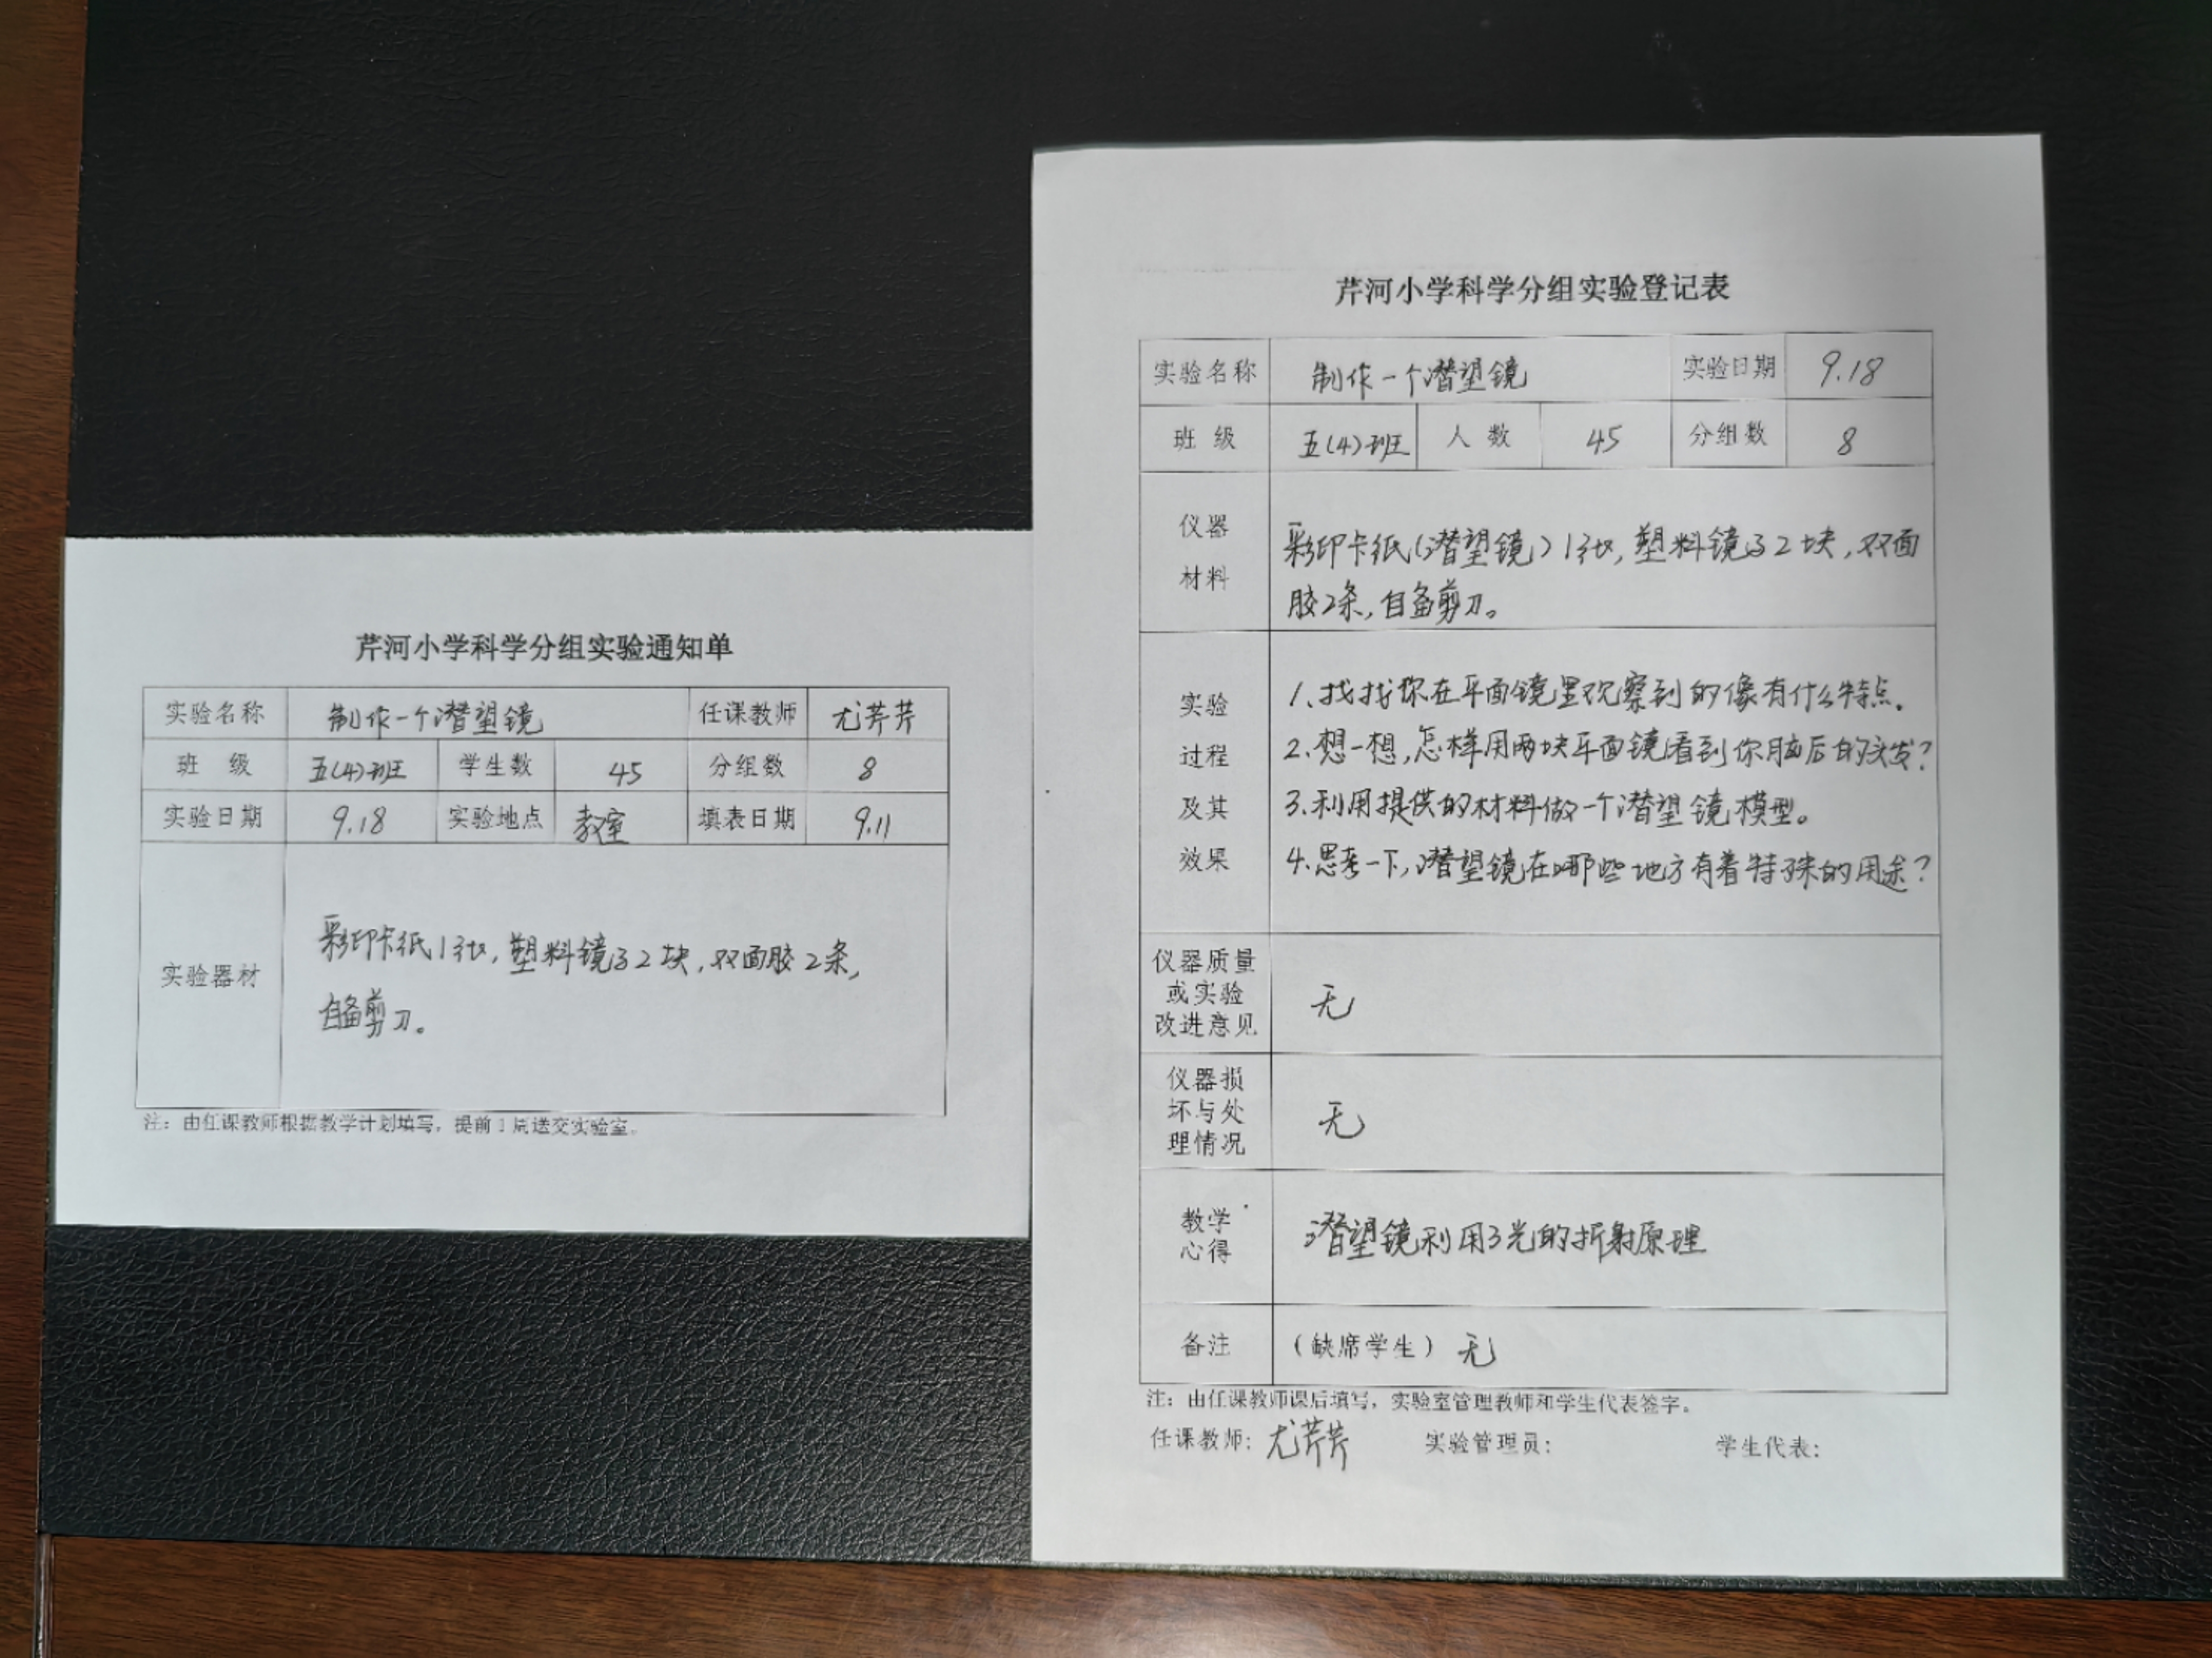 芹河小学科学分组实验通知单
实验名称 制作一个潜望镜 任课教师 尤芹芹
班 级 五(4)班 学生数 45 分组数 8
实验日期 9.18 实验地点 教室 填表日期 9.11
实验器材
彩印卡纸1张,塑料镜子2块,双面胶2条,
自备剪刀。
注：由任课教师根据教学计划填写，提前1周送交实验室。
芹河小学科学分组实验登记表
实验名称 制作一个潜望镜 实验日期 9.18
班 级 五(4)班 人 数 45 分组数 8
仪器
材料
彩印卡纸(潜望镜)1张,塑料镜子2块,双面
胶2条,自备剪刀。
实验
过程
及其
效果
1、找找你在平面镜里观察到的像有什么特点.
2.想一想,怎样用两块平面镜看到你脑后的头发?
3.利用提供的材料做一个潜望镜模型。
4.思考一下,潜望镜在哪些地方有着特殊的用途?
仪器质量
或实验
改进意见
无
仪器损
坏与处
理情况
无
教学
心得
潜望镜利用了光的折射原理
备注 （缺席学生）无
注：由任课教师课后填写，实验室管理教师和学生代表签字。
任课教师: 尤芹芹 实验管理员: 学生代表: